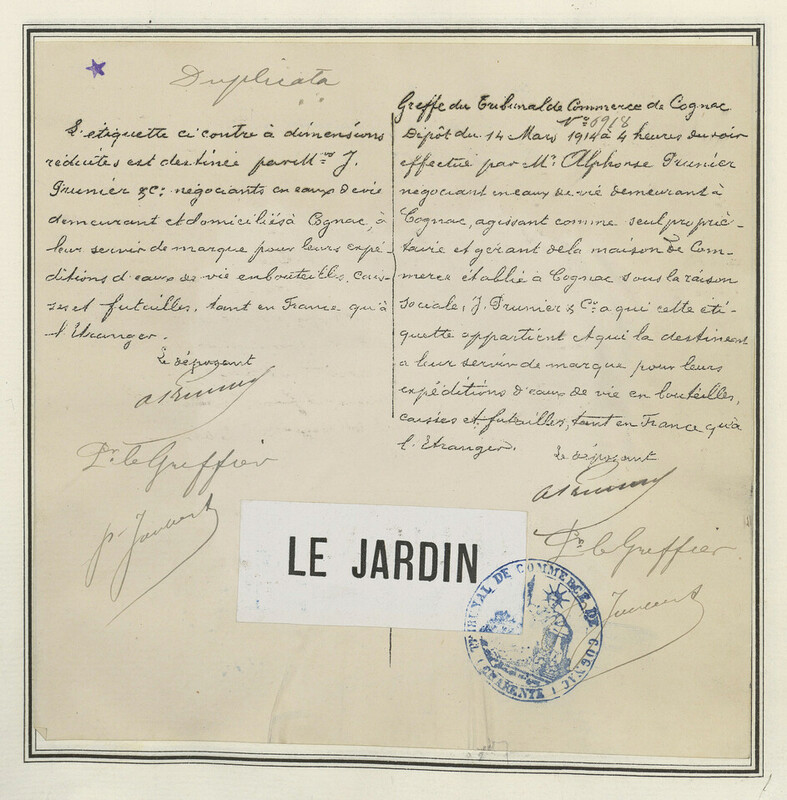 Duplicata
L'étiquette ci contre à dimensions
réduites est destinée par Mrs J.
Prunier & Cie négociants en eaux de vie
demeurant et domiciliés à Cognac, à
leur servir de marque pour leurs expé-
ditions d'eaux de vie en bouteilles, cais-
ses et futailles, tant en France qu'à
l'Etranger.
Le déposant
APrunier
Pr. le Greffier
Greffe du Tribunal de Commerce de Cognac
No 6918
Dépôt du 14 Mars 1914 à 4 heures du soir
effectué par Mr. Alphonse Prunier
négociant en eaux de vie demeurant à
Cognac, agissant comme seul proprié-
taire et gérant de la maison de Com-
merce établie à Cognac sous la raison
sociale, J. Prunier & Cie à qui cette éti-
quette appartient et qui la destinent
à leur servir de marque pour leurs
expéditions d'eaux de vie en bouteilles,
caisses et futailles, tant en France qu'à
l'Etranger.
Le déposant
APrunier
Pr. le Greffier
LE JARDIN
TRIBUNAL DE COMMERCE DE COGNAC
(CHARENTE)